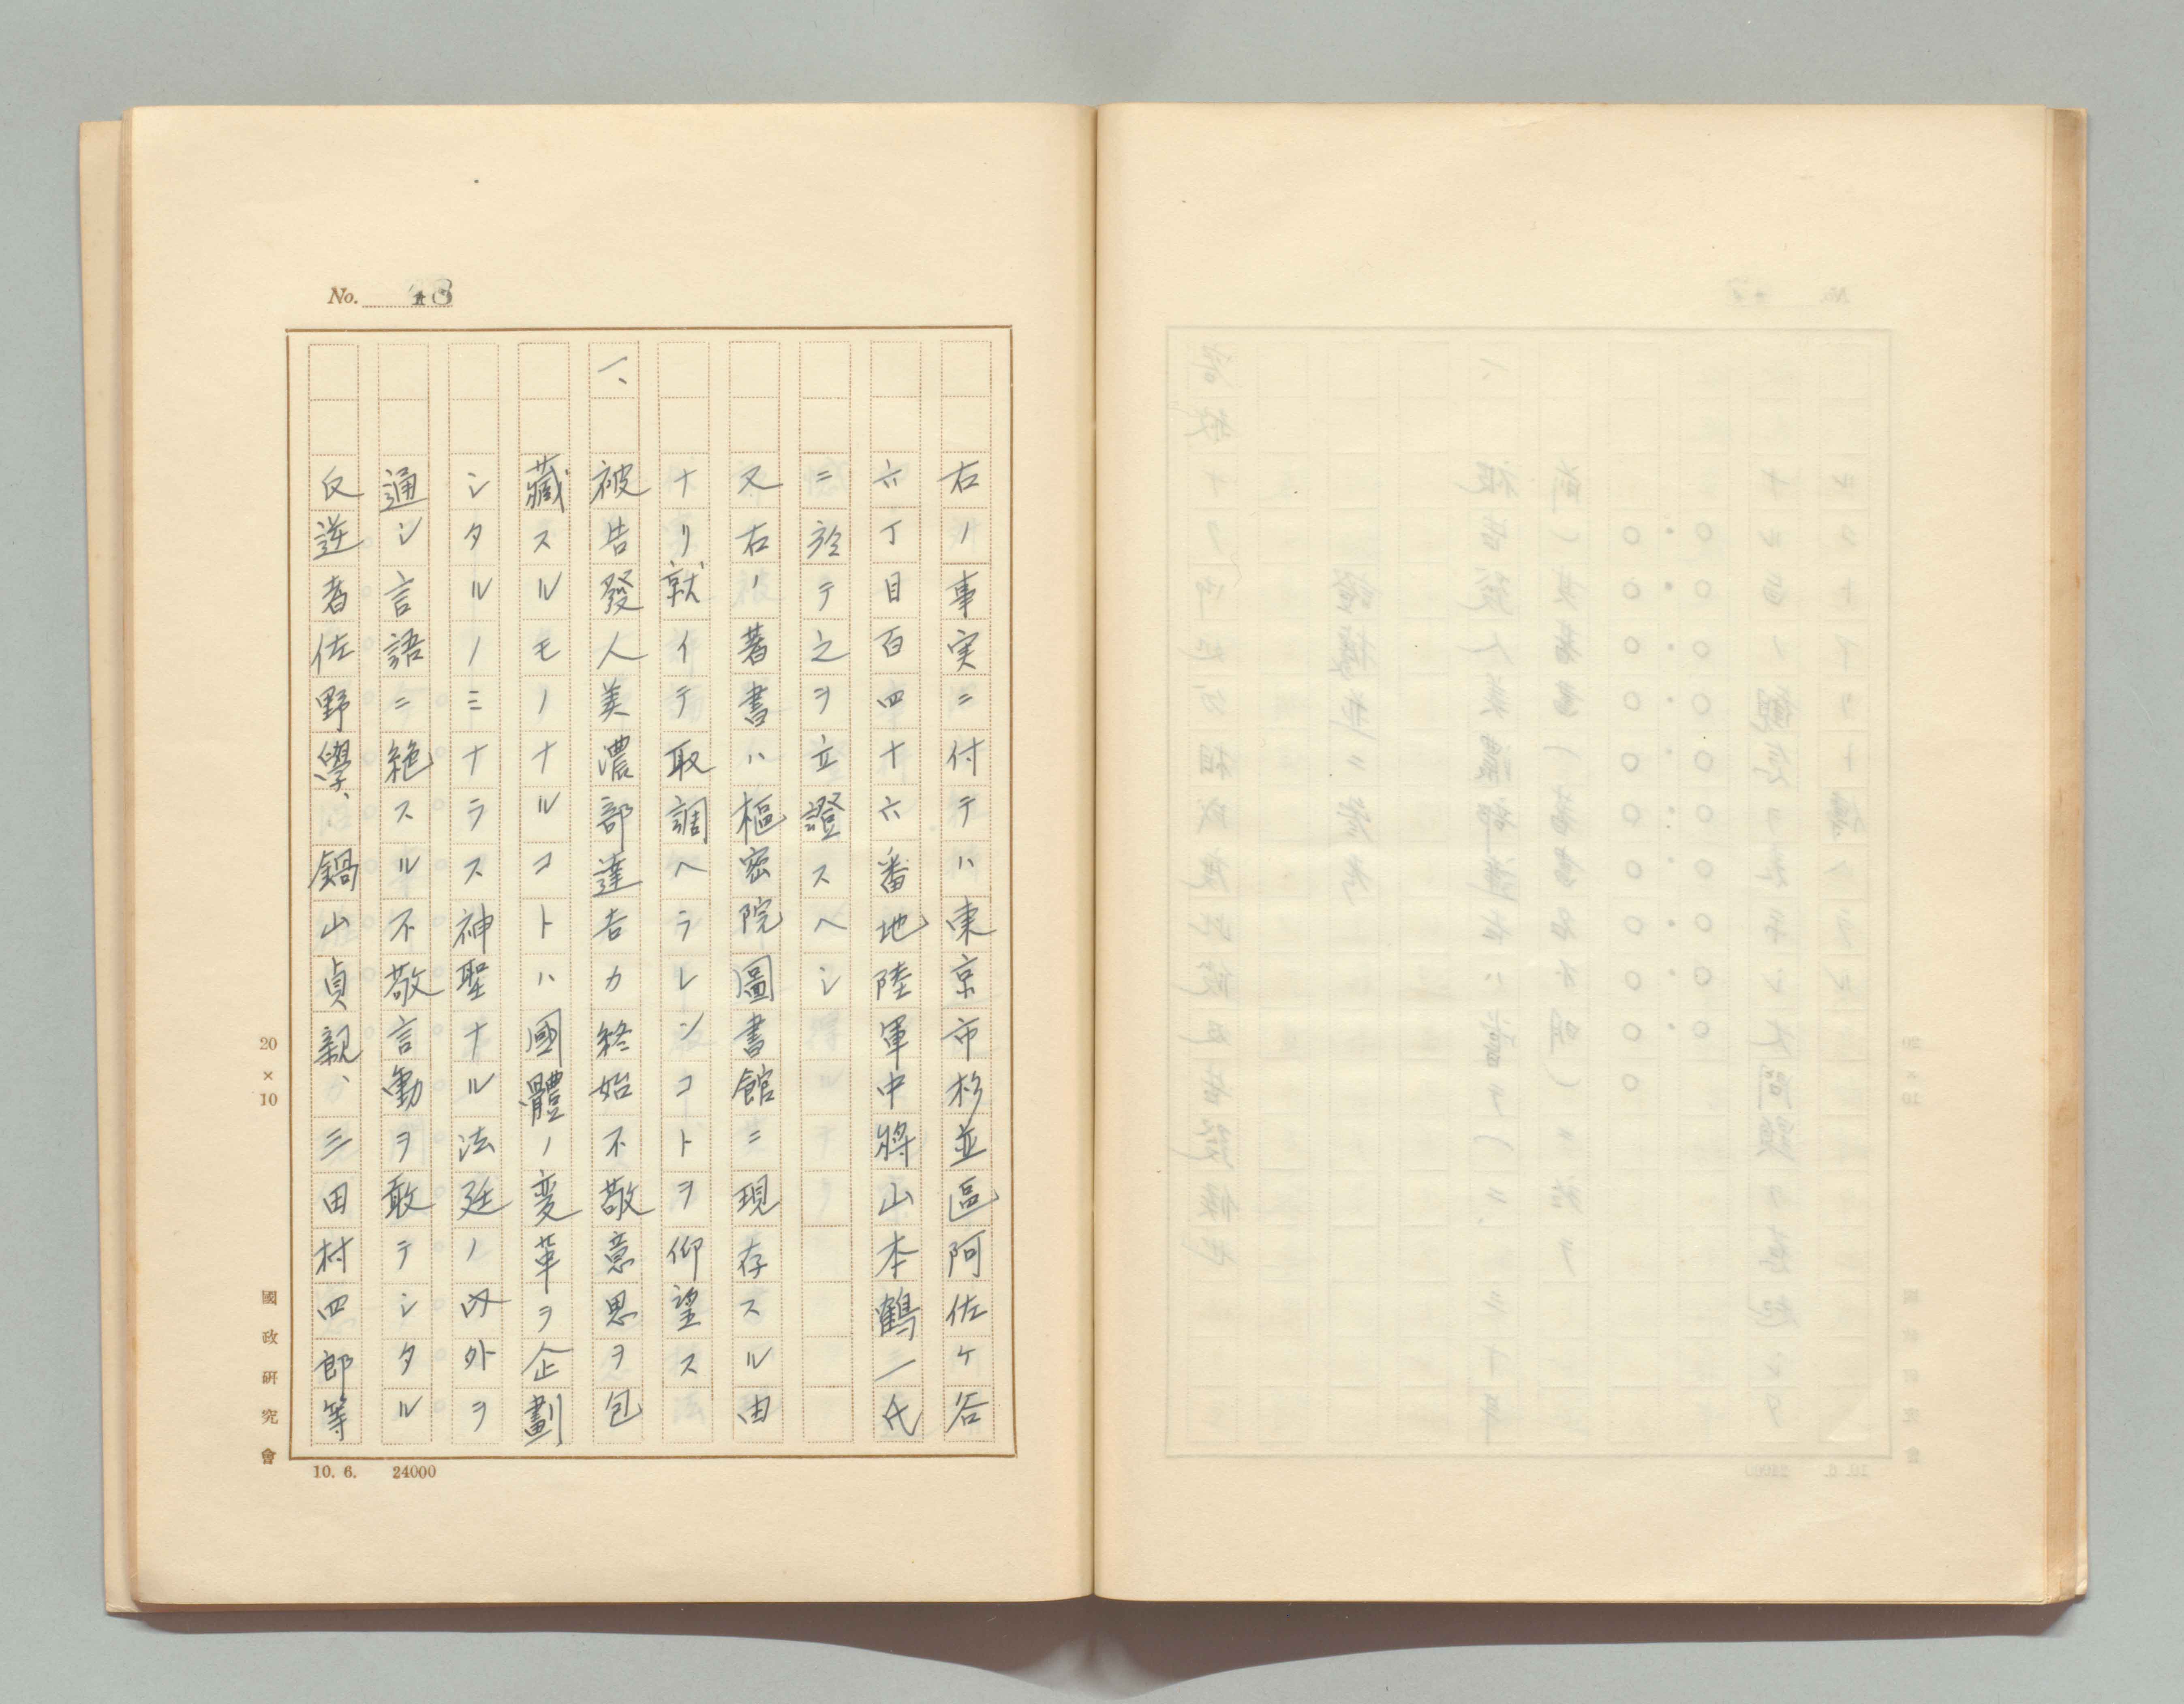 No. 48
右ノ事実ニ付テハ東京市杉並區阿佐ケ谷
六丁目百四十六番地陸軍中將山本鶴一氏
ニ於テ之ヲ立證スヘシ
又右ノ著書ハ樞密院圖書館ニ現存スル由
ナリ就イテ取調ヘラレンコトヲ仰望ス
一、被告發人美濃部達吉カ終始不敬意思ヲ包
藏スルモノナルコトハ國體ノ変革ヲ企劃
シタルノミナラス神聖ナル法廷ノ内外ヲ
通シ言語ニ絶スル不敬言動ヲ敢テシタル
反逆者佐野學、鍋山貞親、三田村四郎等
20×10
國政研究會
10. 6. 24000